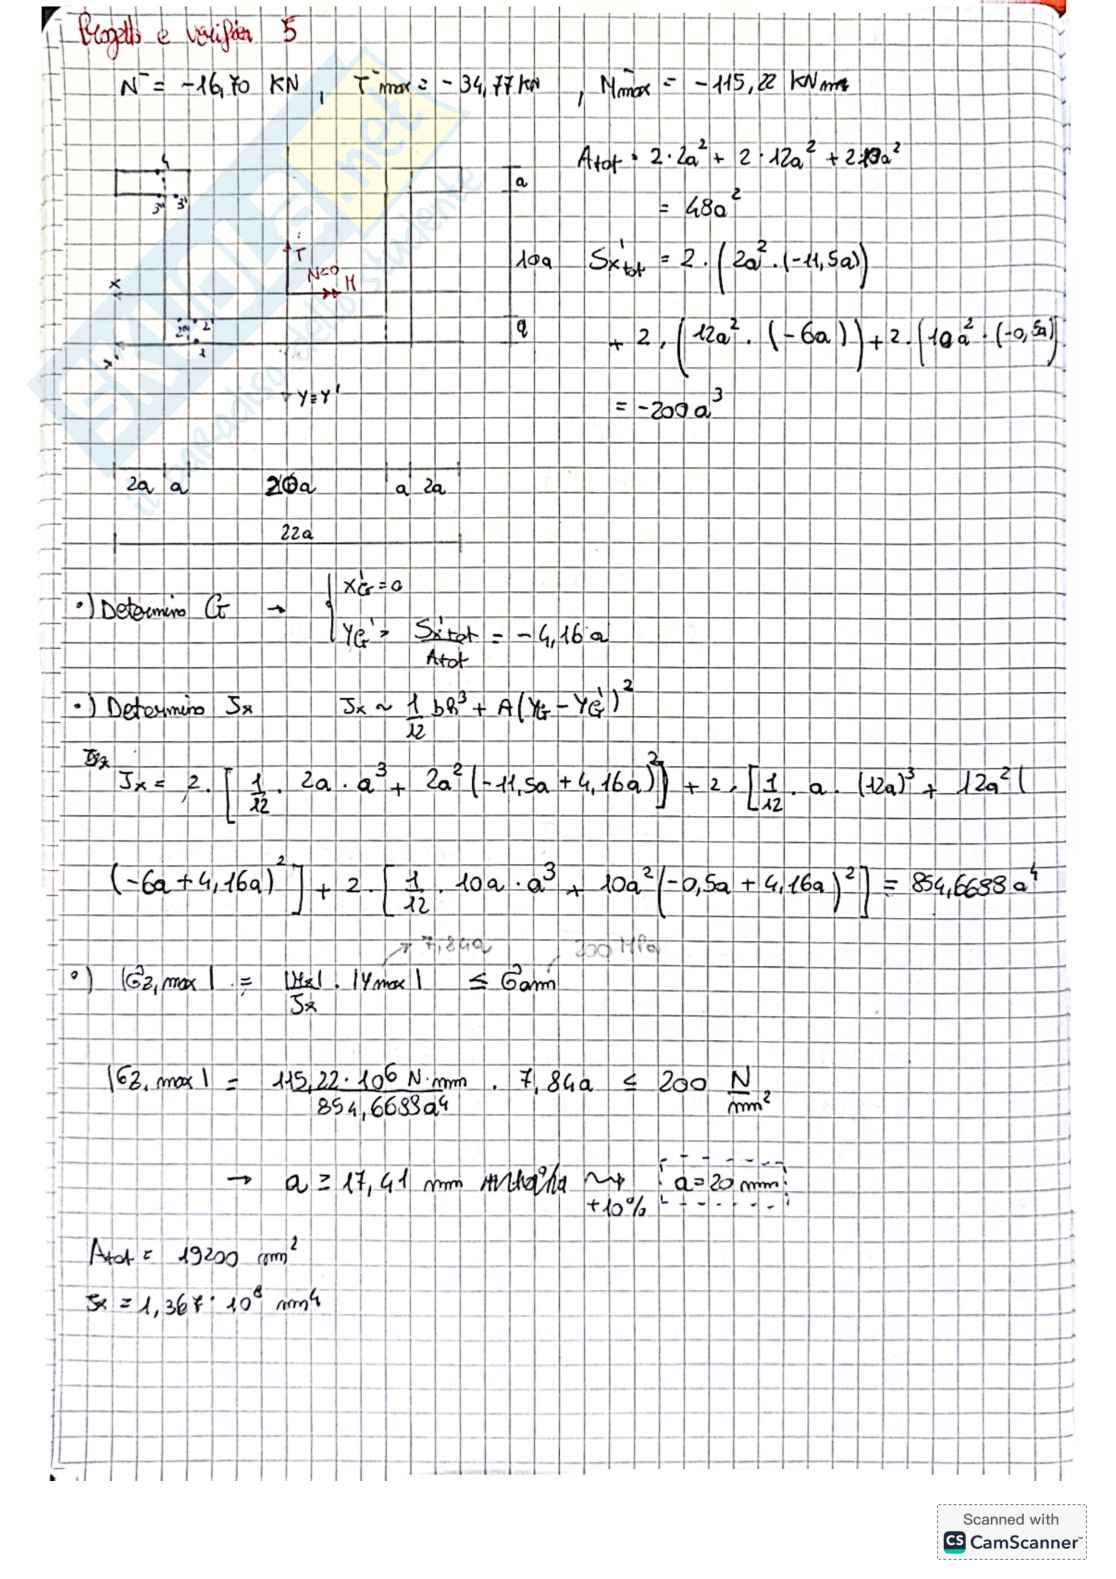 Progetto e verifica 5
N⁻ = -16,70 KN , T⁻max = -34,77 KN , M⁻max = -115,22 KN m
Atot = 2·2a² + 2·12a² + 2·10a²
= 48a²
Sx'tot = 2·(2a²·(-11,5a))
+ 2·(12a²·(-6a)) + 2·(10a²·(-0,5a)
= -200a³
4
3'' 3'
a
10a
a
T
N=0
M
x
2'' 2'
1
x'
y≡y'
2a a 20a a 2a
22a
•) Determino G → { x'G = 0
y'G = Sx'tot / Atot = -4,16a
•) Determino Jx Jx ~ 1/12 bh³ + A(yG - y'G)²
Jx = 2·[1/12 · 2a · a³ + 2a²(-11,5a + 4,16a)²] + 2·[1/12 · a · (12a)³ + 12a²(
(-6a + 4,16a)²] + 2·[1/12 · 10a · a³ + 10a²(-0,5a + 4,16a)²] = 854,6688a⁴
7,84a 200 MPa
•) |σz,max| = |Mx|/Jx · |ymax| ≤ σamm
|σz,max| = 115,22·10⁶ N·mm / 854,6688a⁴ · 7,84a ≤ 200 N/mm²
→ a ≥ 17,41 mm ⇝ +10% a = 20 mm
Atot = 19200 mm²
Jx = 1,367·10⁸ mm⁴
Scanned with
CS CamScanner